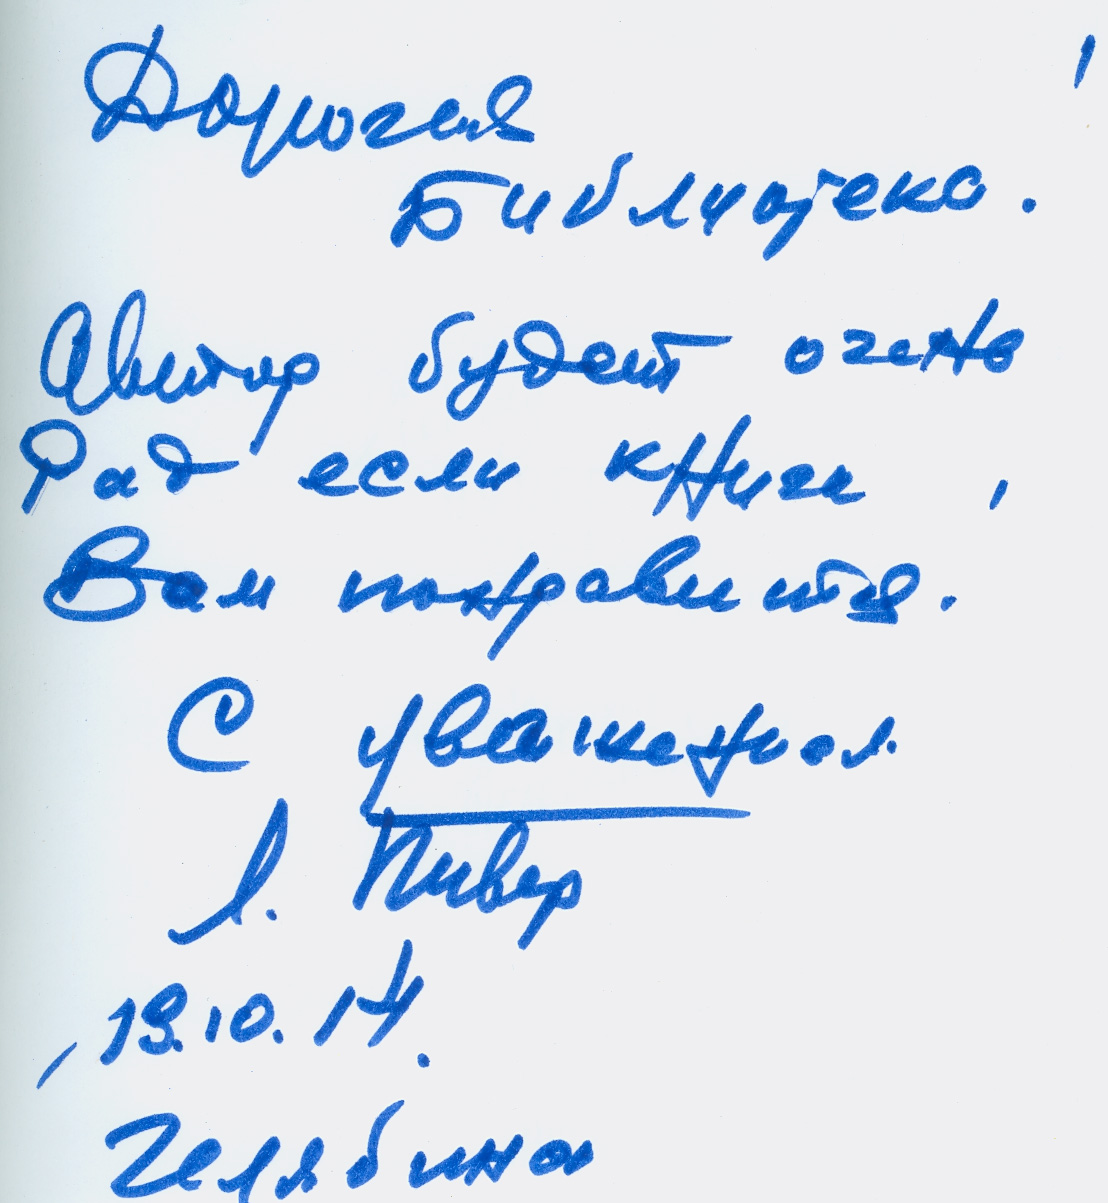 Дорогая
Библиотека.
Автор будет очень
Рад если книги
Вам понравится.
С уважением
Л. Пивер
19.10.14.
Челябинск